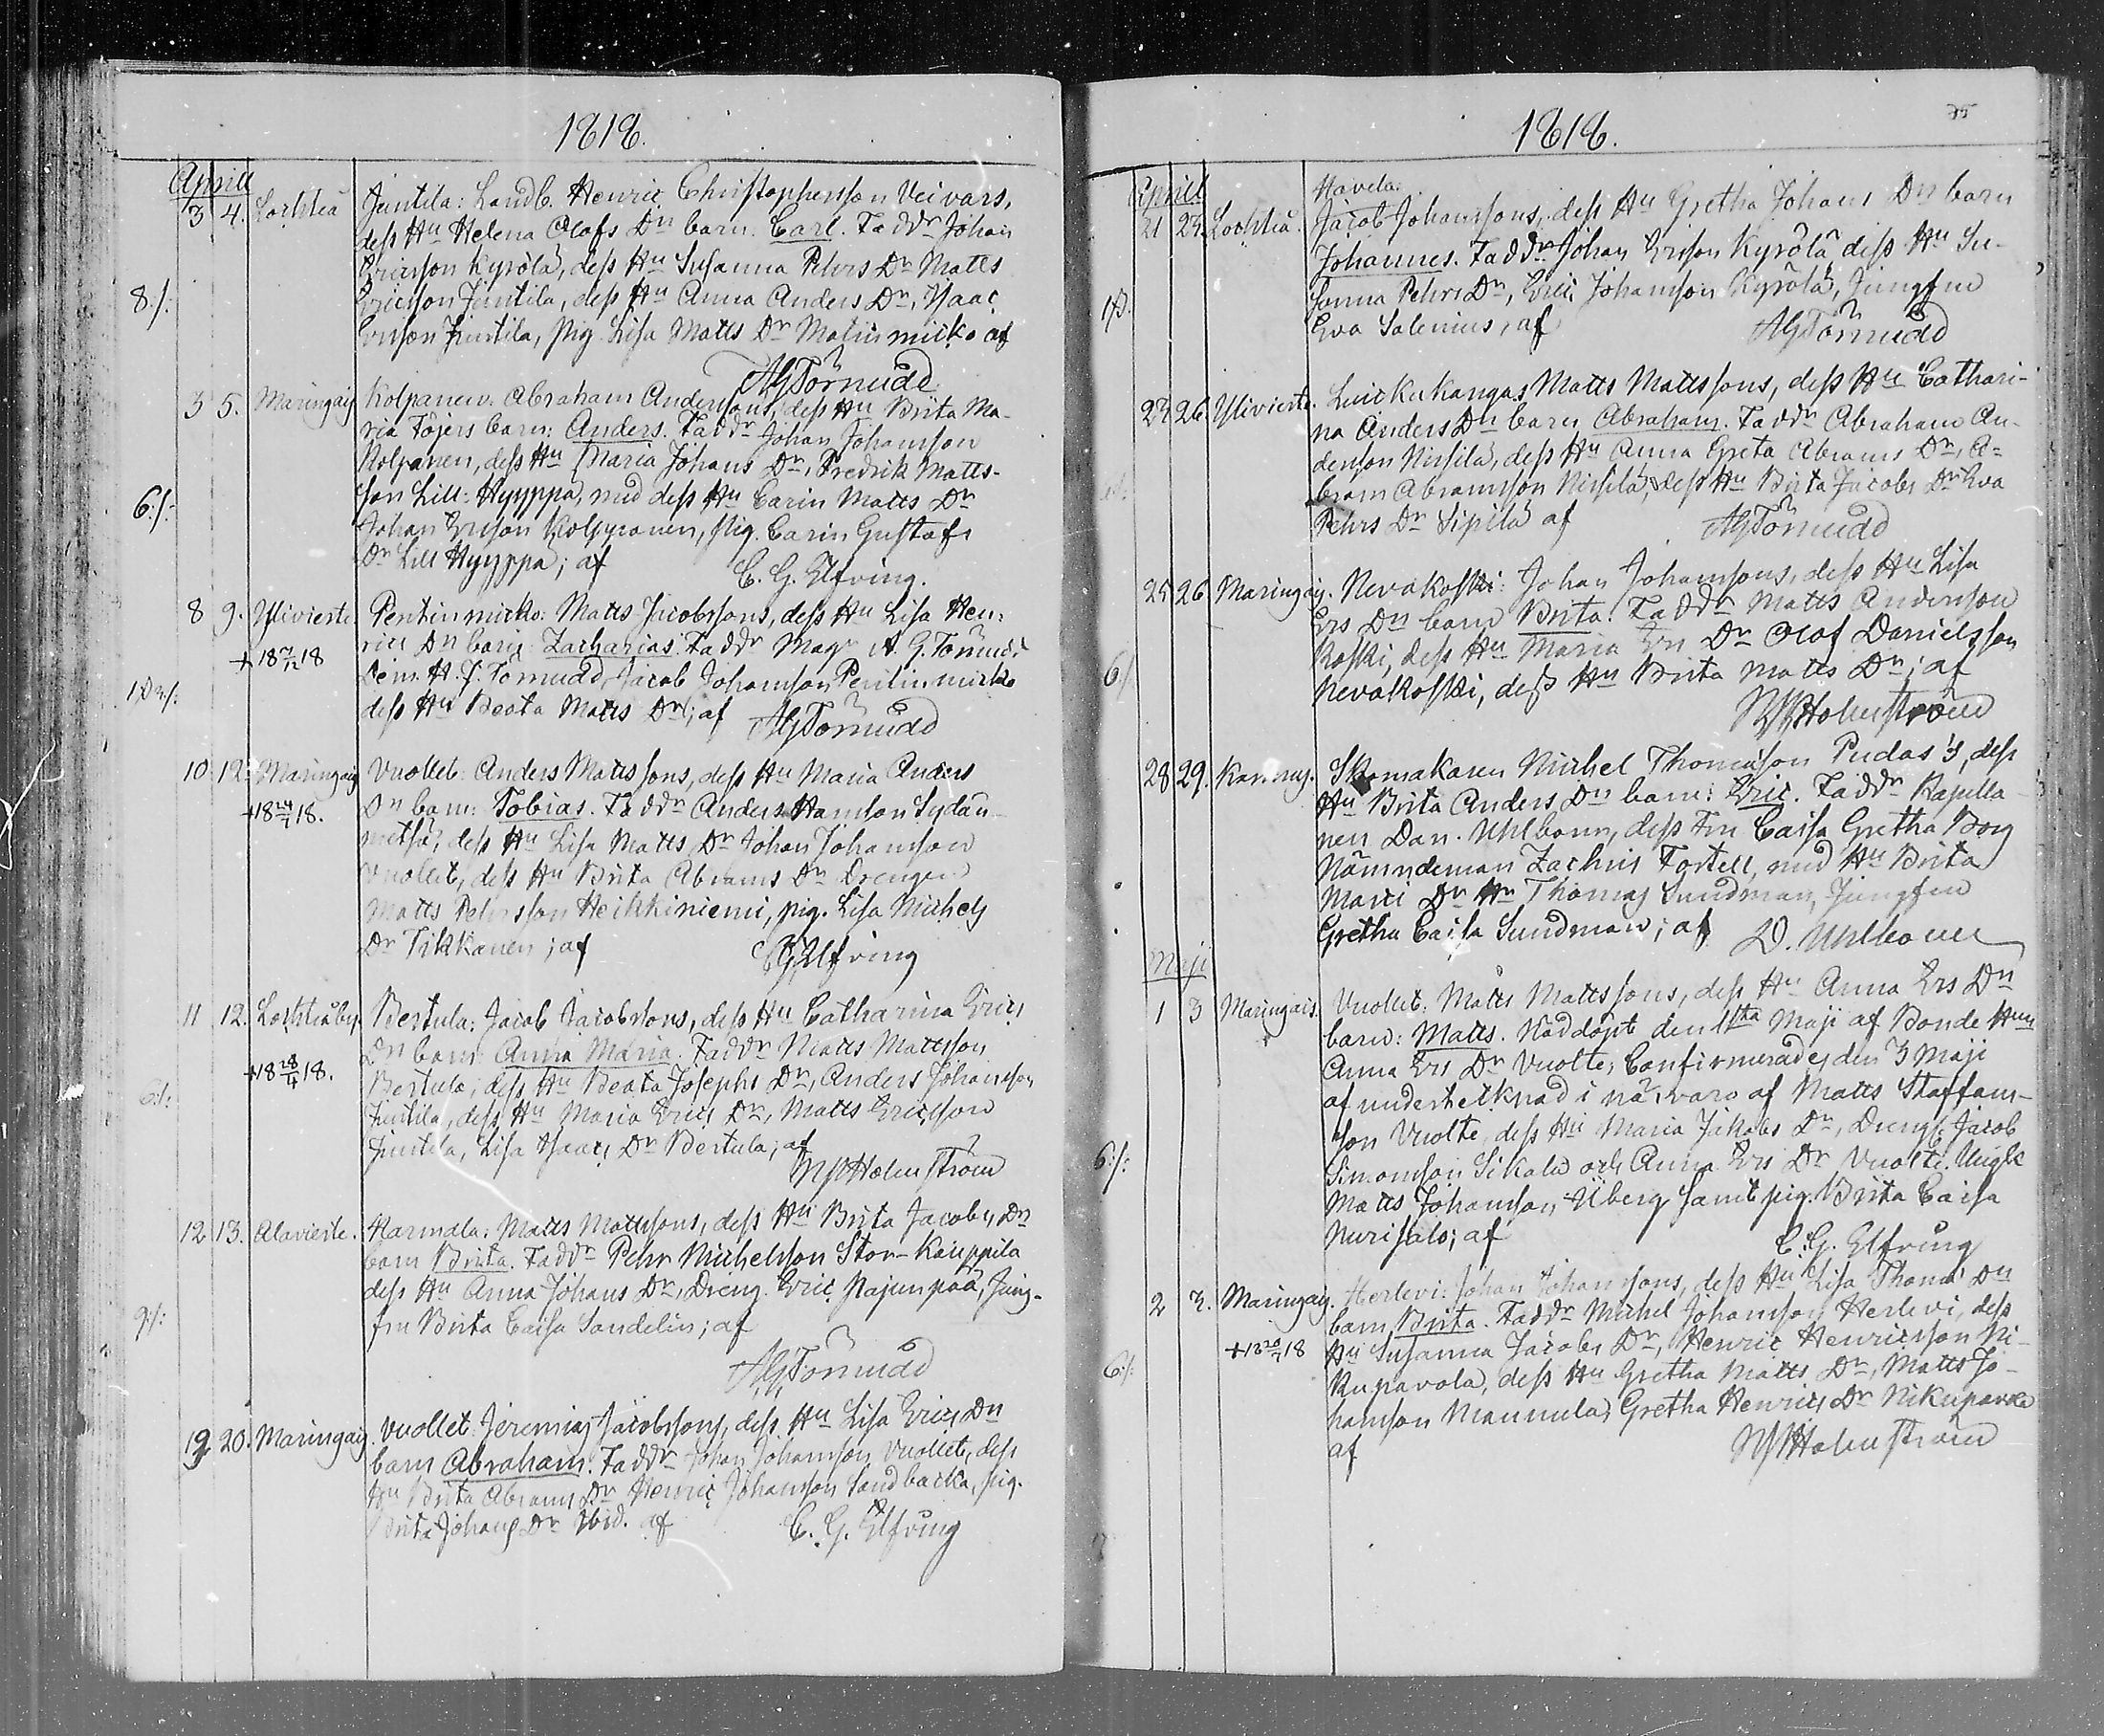 1818.
Aprill
3 4. Lochteå Juntila: Landb. Henric Christophersson Veivars,
dess Hu Helena Olofs Dr barn. Carl. Faddr Johan
Ericsson Kyrölä, dess Hu Susanna Pehrs Dr Matts
8:/: Ericsson Juntila, dess Hu Anna Anders Dr, Isaac
Ersson Juntila, pig. Lisa Matts Dr af
AGTörnudd
3 5. Maringais Kolpanen. Abraham Anderssons, dess Hu Brita Ma-
ria Töjers barn: Anders. Faddr Johan Johansson
Kolpanen, dess Hu Maria Johans Dr, Fredrik Matts-
6:/: son Lill: Hyyppä, med dess Hu Carin Matts Dr
Johan Ersson Kolppanen, pig. Carin Gustafs
Dr Lill Hyyppä; af C. G. Elfving.
8 9. Ylivieste. Pentinmicko: Matts Jacobssons, dess Hu Lisa Hen-
rics Dr barn Zacharias. Faddr Mag A. G. Törnudd
+18 7/12 18
H. J. Törnudd, Jacob Johansson Pentinmicko
dess Hu Beata Matts Dr; af AGTörnudd
10 12. Maringais Vuollet: Anders Mattssons, dess Hu Maria Anders
+18 24/7 18. Dr barn: Tobias. Faddr Anders Hansson Sydän-
metsä, dess Hu Lisa Matts Dr Johan Johansson
Vuollet, dess Hu Brita Abrams Dr Drengen
Matts Pehrsson Heikkiniemi, pig. Lisa Michels
Dr Tikkanen; af CGElfving
11 12. Lochteåby. Bertula: Jacob Jacobssons, dess Hu Catharina Erics
Dr barn Anna Maria. Faddr Matts Mattsson
+18 28/4 18. Bertula, dess Hu Beata Josephs Dr, Anders Johansson
6:/: Juntila, dess Hu Maria Erics Dr, Matts Ericsson
Juntila, Lisa Isaacs Dr Bertula; af
Holmström
12 13. Alavieste. Harmala: Matts Mattssons, dess Hu Brita Jacobs Dr
barn Brita. Faddr Pehr Michelsson Stor-Kauppila
dess Hu Anna Johans Dr, Dreng. Eric Pajunpää, Jung-
9:/: fru Brita Caisa Sandelin; af
AGTörnudd
19 20. Maringais. Vuollet Jeremias Jacobssons, dess Hu Lisa Erics Dr
barn Abraham. Faddr Johan Johansson Vuollet, dess
Hu Brita Abrams Dr Henric Johansson Sandbacka, pig.
Brita Johans Dr Ibid. af C. G. Elfving
1818. 75
Aprill Havela:
21 23. Lochteå. Jacob Johanssons, dess Hu Gretha Johans Dr barn
Johannes. Faddr Johan Ersson Kyrölä dess Hu Su-
sanna Pehrs Dr, Eric Johansson Kyrölä, Jungfru
Eva Salenius, af AGTörnudd
23 26. Ylivieste. Luickukangas Matts Mattssons, dess Hu Cathari-
na Anders Dr barn Abraham. Faddr Abraham An-
dersson Nissilä, dess Hu Anna Greta Abrams Dr, A-
bram Abramsson Nissilä, dess Hu Brita Jacobs Dr Eva
Pehrs Dr Sipilä af AGTörnudd
25 26 Maringais. Nevakoski: Johan Johanssons, dess Hu Lisa
Ers Dr barn Brita. Faddr Matts Andersson
6:/: Koski, dess Hu Maria Ers Dr Olof Danielsson
Nevakoski, dess Hu Brita Matts Dr; af
Holmström
28 29. Kannus. Skomakaren Michel Thomasson Pudas's, dess
Hu Brita Anders Dr barn: Eric. Faddr Kapella-
nen Dan. Uhlbom, dess Fru Caisa Gretha Borg
Nämndeman Zachris Tortell, med Hu Brita
Marci Dr Hr Thomas Sundman, Jungfru
Gretha Caisa Sundman; af D. Uhlbom
Maji
1 3 Maringais. Vuollet: Matts Mattssons, dess Hu Anna Ers Dr
barn: Matts. Nöddöpt den 1sta Maji af Bonde Hun
Anna Ers Dr Vuolte, Confirmerades den 3 Maji
af undertecknad i närvaro af Matts Staffans-
son Vuolte, dess Hu Maria Jakobs Dr, Dreng. Jacob
6:/: Simonsson Sikala och Anna Ers Dr Vuolte. Ungk
Matts Johansson Åberg samt pig. Brita Caisa
Nurisalo; af C. G. Elfving
2 3. Maringais. Herlevi: Johan Johanssons, dess Hu Lisa Thomæ Dr
barn Brita. Faddr Michel Johansson Herlevi, dess
+18 20/7 18 Hu Susanna Jacobs Dr, Henric Henricsson Ni-
6:/: kupavola, dess Hu Gretha Matts Dr, Matts Jo-
hansson Mannula, Gretha Henrics Dr Nikupavola
af Holmström